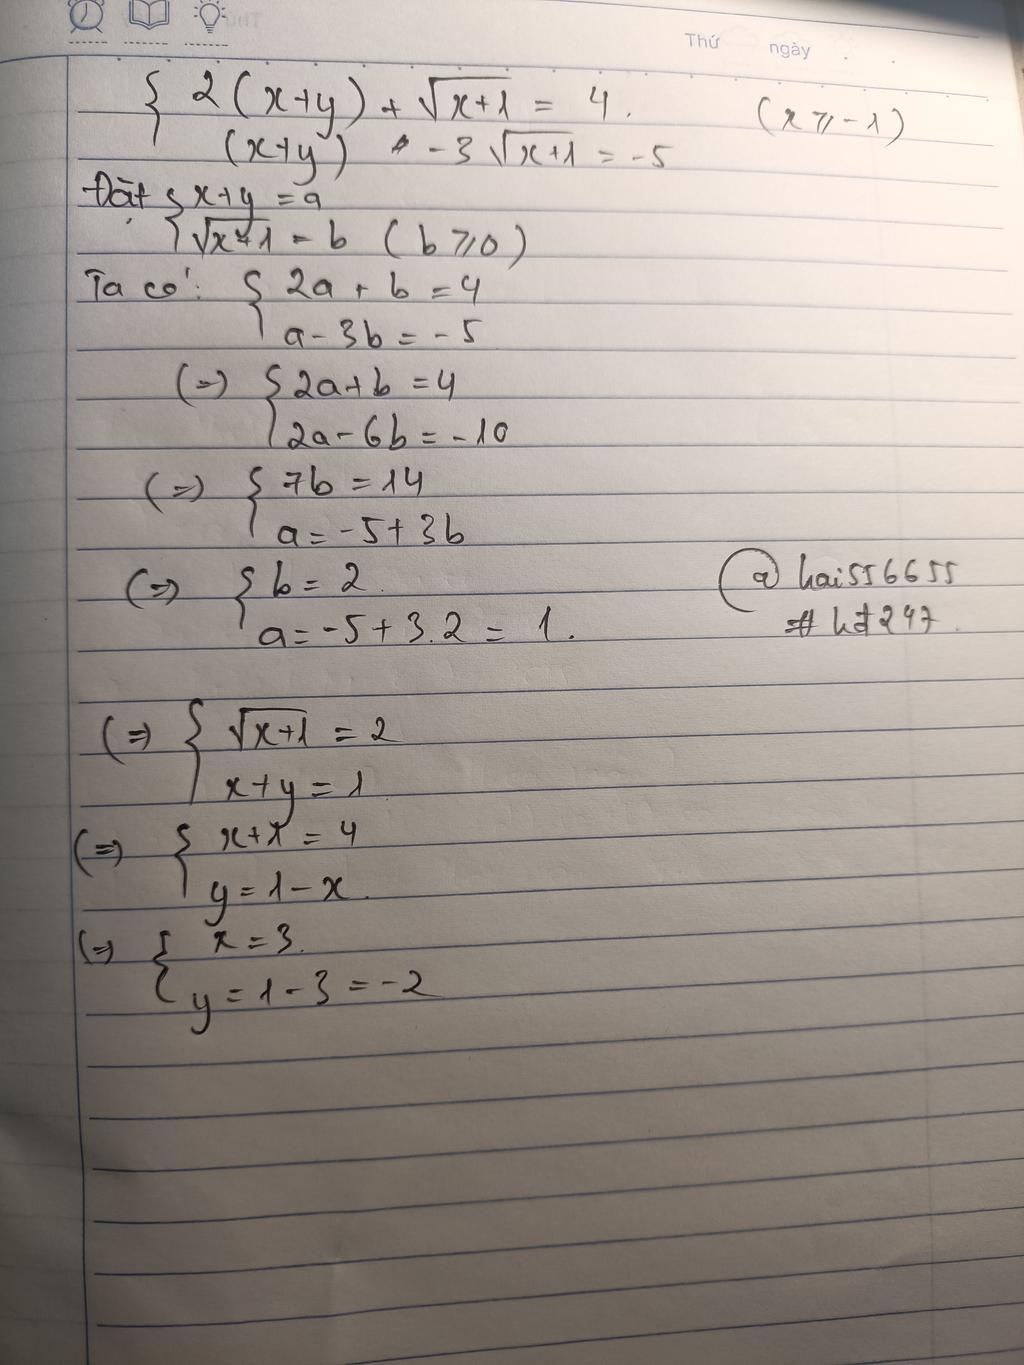 Thứ ngày
{ 2(x+y) + √(x+1) = 4. (x ⩾ -1)
(x+y) -3√(x+1) = -5
Đặt { x+y = a
√(x+1) = b (b ⩾ 0)
Ta có: { 2a + b = 4
a - 3b = -5
(=) { 2a+b = 4
2a - 6b = -10
(=) { 7b = 14
a = -5 + 3b
(=) { b = 2.
a = -5 + 3.2 = 1.
@hai556655
#hđ247.
(=) { √(x+1) = 2
x+y = 1
(=) { x+1 = 4
y = 1 - x.
(=) { x = 3.
y = 1 - 3 = -2